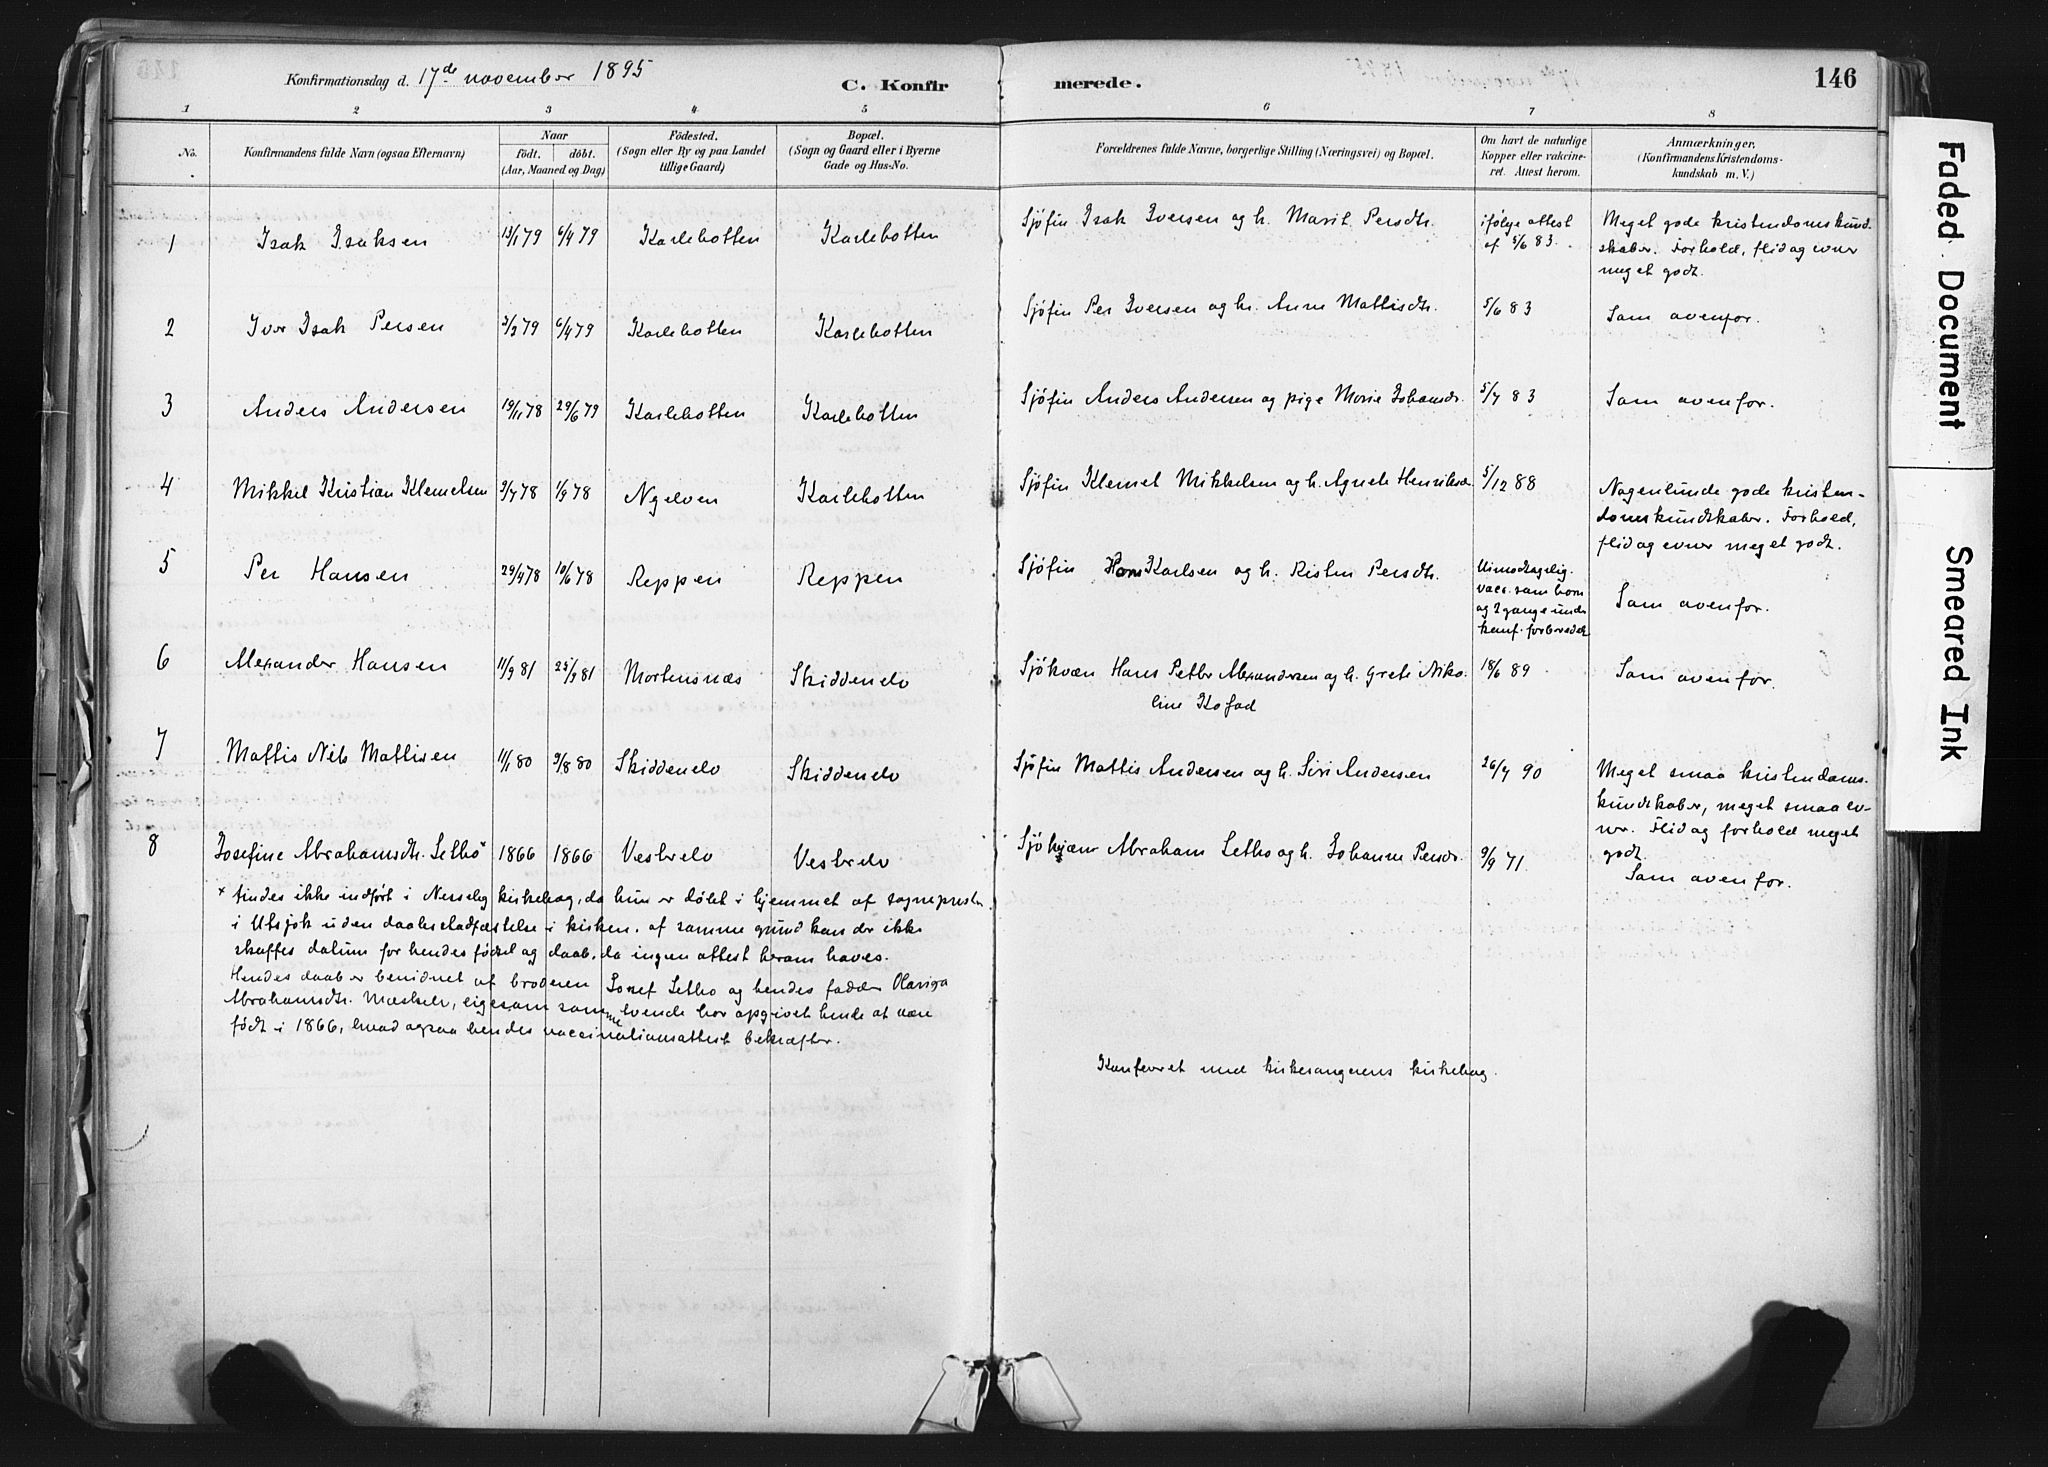 Konfirmationsdag d. 17de november 1895
C. Konfir merede. 146
1 2 3 4 5 6 7 8
No. Konfirmandens fulde Navn (ogsaa Efternavn) Naar födt. döbt. (Aar, Maaned og Dag) Födested. (Sogn eller By og paa Landet tillige Gaard) Bopæl. (Sogn og Gaard eller i Byerne Gade og Hus-No. Forældrenes fulde Navne, borgerlige Stilling (Næringsvei) og Bopæl. Om havt de naturlige Kopper eller vakcineret. Attest herom. Anmærkninger. (Konfirmandens Kristendomskundskab m. V.)
1 Isak Isaksen 13/1 79 6/4 79 Karlebotten Karlebotten Sjöfin Isak Iversen og h. Marit Persdtr. ifölge attest af 5/6 83. Meget gode kristendomskund-
skaber. Forhold, flid og evner
meget godt.
2 Iver Isak Persen 3/3 79 6/4 79 Karlebotten Karlebotten Sjöfin Per Iversen og h. Anne Mattisdtr. 5/6 83 Som ovenfor.
3 Anders Andersen 19/11 78 29/6 79 Karlebotten Karlebotten Sjöfin Anders Andersen og pige Marie Johansdr. 5/7 83 Som ovenfor.
4 Mikkel Kristian Klemetsen 3/7 78 1/9 78 Nyelven Karlebotten Sjöfin Klemet Mikkelsen og h. Agnete Henriksd. 5/12 88 Nogenlunde gode kristen-
domskundskaber. Forhold,
flid og evner meget godt.
5 Per Hansen 29/4 78 10/6 78 Reppen Reppen Sjöfin Hans Karlsen og h. Kisten Persdtr. Uimodtagelig.
vacc. som barn
og 2 gange under
konf. forberedels
Som ovenfor.
6 Alexander Hansen 11/9 81 25/9 81 Mortensnæs Skiddenelv Sjökvæn Hans Petter Alexandersen og h. Grete Niko-
line Kofod 18/6 89 Som ovenfor.
7 Mattis Nils Mattisen 11/1 80 9/8 80 Skiddenelv Skiddenelv Sjöfin Mattis Andersen og h. Siri Andersen 26/7 90 Meget smaa kristendoms-
kundskaber, meget smaa ev-
ner. Flid og forhold meget
godt.
8 Josefine Abrahamsdtr. Letho x 1866 1866 Vestrelv Vestrelv Sjökvæn Abraham Letho og h. Johanne Persdr. 9/9 71. Som ovenfor.
x findes ikke indfört i Nesseby kirkebog, da hun er döbt i hjemmet af sognepresten
i Utsjok uden daabsstadfæstelse i kirken. af samme grund kan der ikke
skaffes datum for hendes födsel og daab, da ingen attest herom haves.
Hendes daab er bevidnet af broderen Josef Letho og hendes fadder
Abrahamsdtr. ligesom samme har opgivet hende at være
födt i 1866, hvad ogsaa hendes vaccinationsattest bekræfter.
Konfereret med kirkesangerens kirkebog.
Faded Document
Smeared Ink